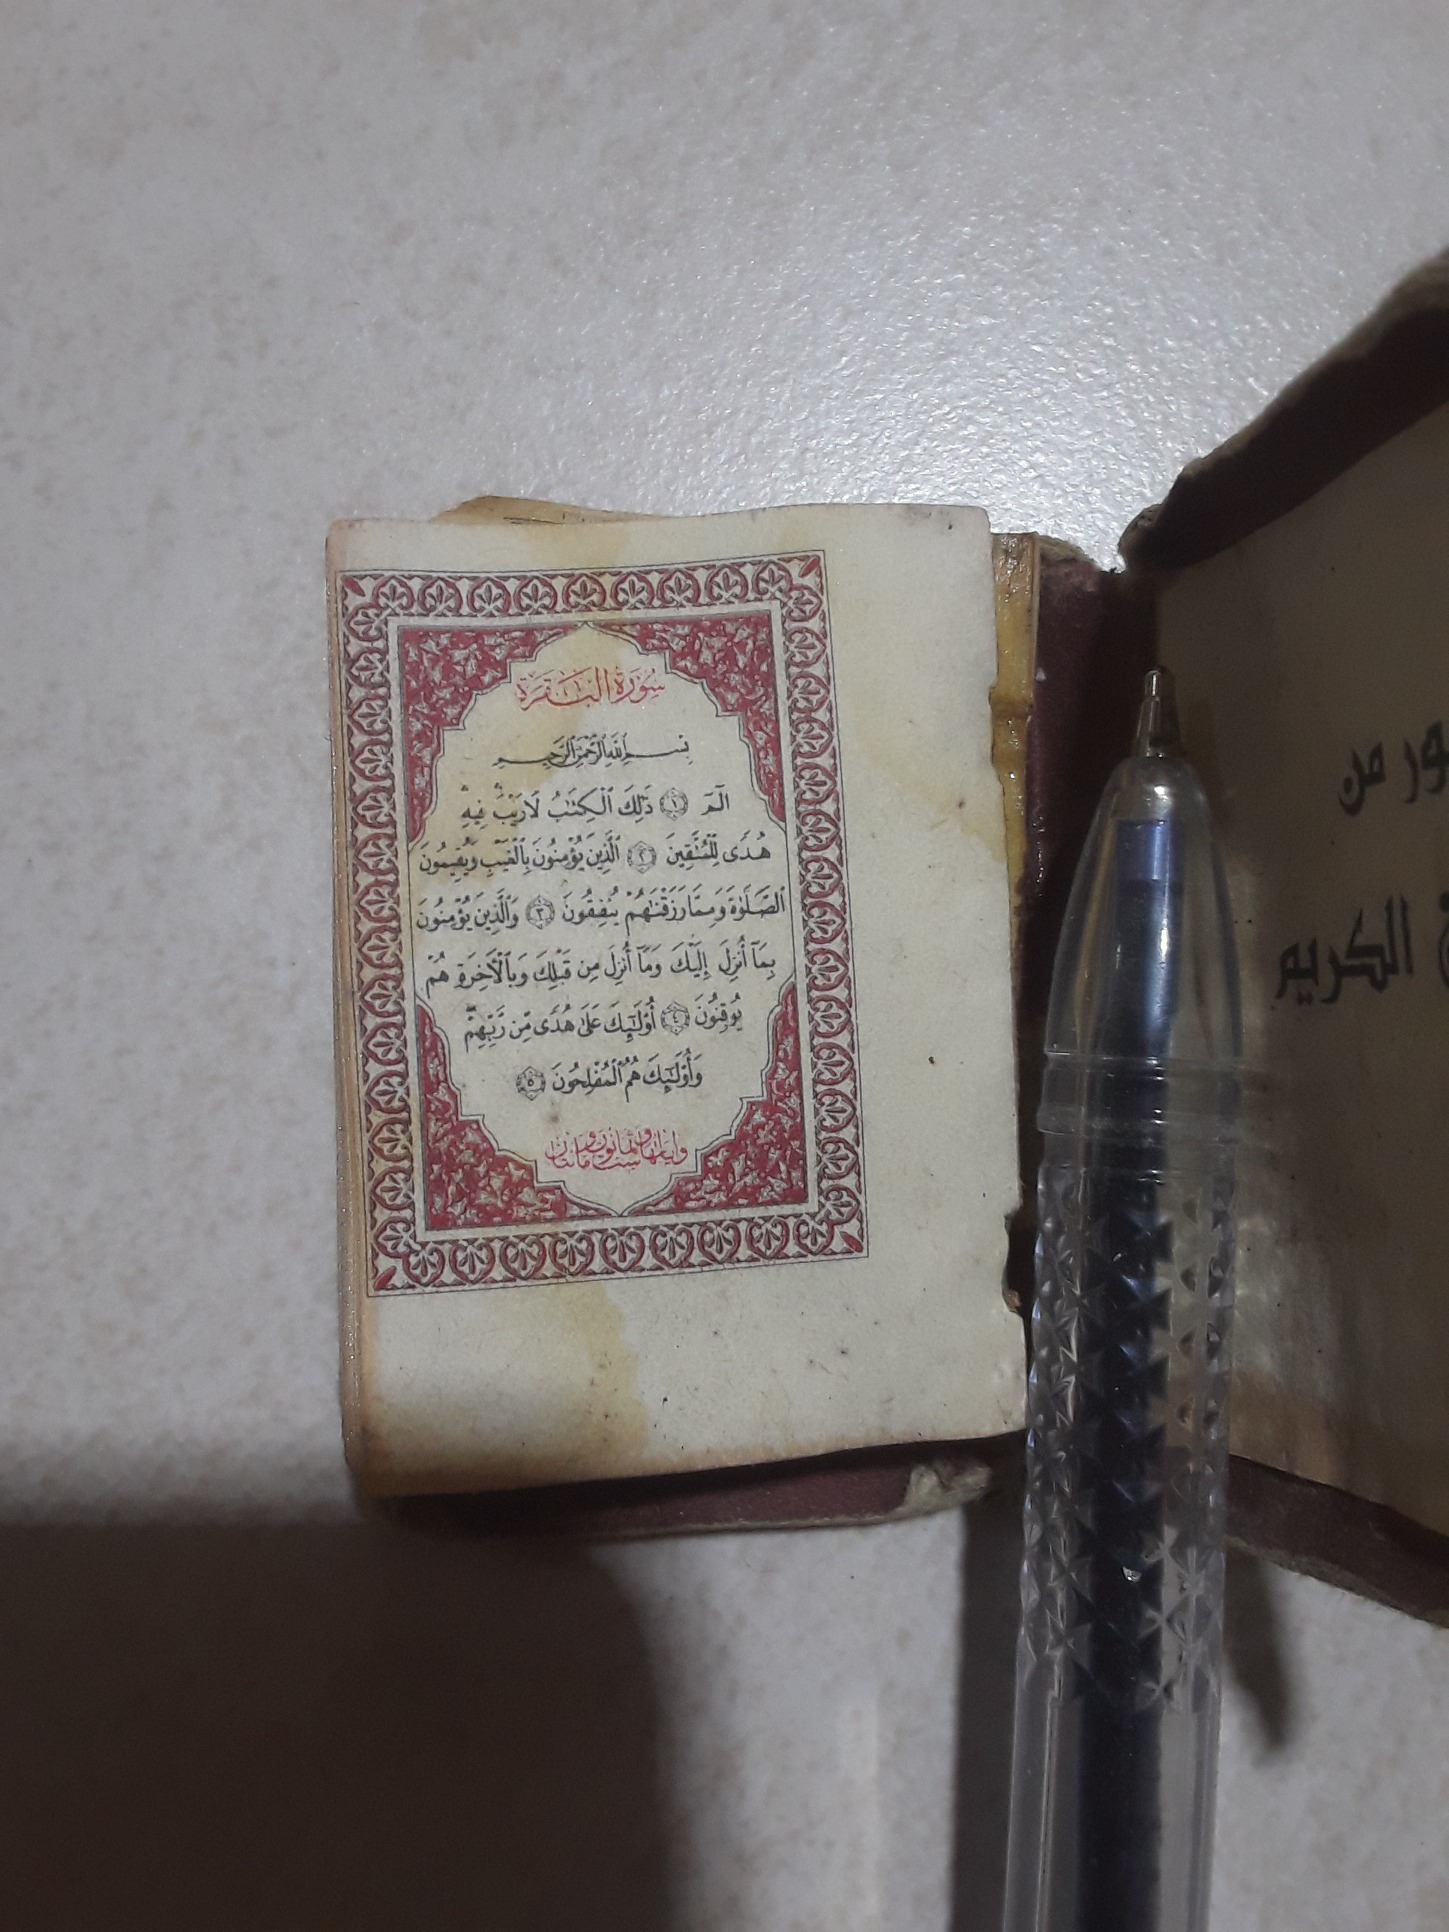 سُورَةُ الْبَقَرَة
بِسْمِ ٱللَّهِ ٱلرَّحْمَٰنِ ٱلرَّحِيمِ
الٓمٓ ١ ذَٰلِكَ ٱلْكِتَٰبُ لَا رَيْبَ ۛ فِيهِ ۛ
هُدًى لِّلْمُتَّقِينَ ٢ ٱلَّذِينَ يُؤْمِنُونَ بِٱلْغَيْبِ وَيُقِيمُونَ
ٱلصَّلَوٰةَ وَمِمَّا رَزَقْنَٰهُمْ يُنفِقُونَ ٣ وَٱلَّذِينَ يُؤْمِنُونَ
بِمَآ أُنزِلَ إِلَيْكَ وَمَآ أُنزِلَ مِن قَبْلِكَ وَبِٱلْأَخِرَةِ هُمْ
يُوقِنُونَ ٤ أُو۟لَٰٓئِكَ عَلَىٰ هُدًى مِّن رَّبِّهِمْ ۖ
وَأُو۟لَٰٓئِكَ هُمُ ٱلْمُفْلِحُونَ ٥
وآياتها ست وثمانون ومائتان
ور من
الكريم